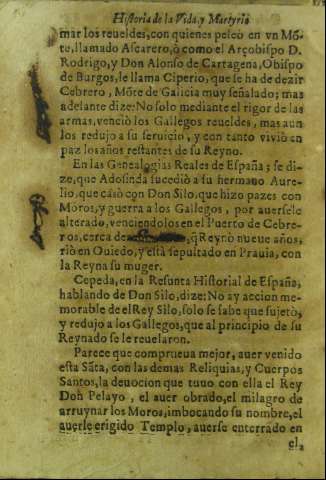 Historia de la Vida, y Martyrio
mar los reueldes, con quienes peleò en vn Mõ-
te, llamado Ascarero, ò como el Arçobispo D.
Rodrigo, y Don Alonso de Cartagena, Obispo
de Burgos, le llama Ciperio, que le ha de dezir
Cebrero, Mõte de Galicia muy señalado; mas
adelante dize: No solo mediante el rigor de las
armas, venciò los Gallegos reueldes, mas aun
los redujo a su seruicio, y con tanto viviò en
paz los años restantes de su Reyno.
En las Genealogias Reales de España; se di-
ze, que Adosinda sucediò a su hermano Aure-
lio, que casò con Don Silo, que hizo pazes con
Moros, y guerra a los Gallegos, por auersele
alterado, venciendolos en el Puerto de Cebre-
ros, cerca de q̃ Reynò nueue años,
riò en Ouiedo, y està sepultado en Prauia, con
la Reyna su muger.
Cepeda, en la Resunta Historial de España,
hablando de Don Silo, dize: No ay accion me-
morable de el Rey Silo, solo se sabe que sujetò,
y redujo a los Gallegos, que al principio de su
Reynado se le reuelaron.
Parece que comprueua mejor, auer venido
esta Sãta, con las demas Reliquias, y Cuerpos
Santos, la deuocion que tuuo con ella el Rey
Don Pelayo, el auer obrado, el milagro de
arruynar los Moros, imbocando su nombre, el
auerle erigido Templo, auerse enterrado en
el,